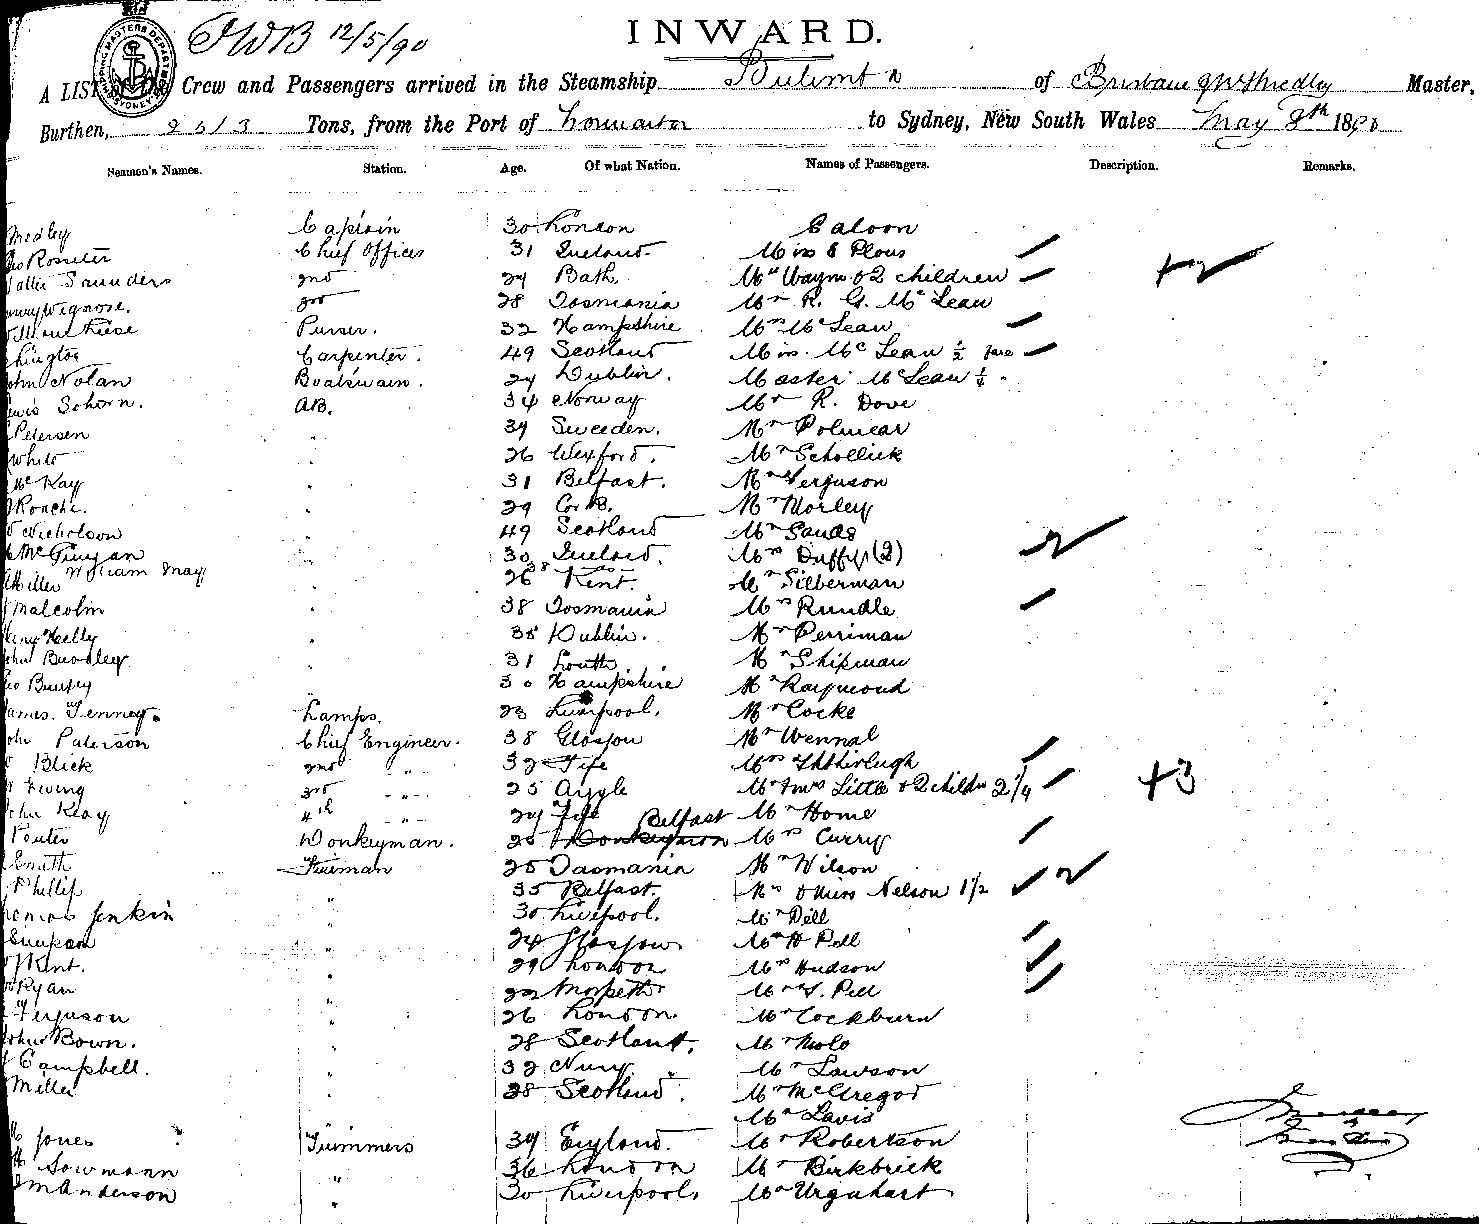 JWB 12/5/90
INWARD.
A LIST Crew and Passengers arrived in the Steamship Bulimba of Brisbane Master,
Burthen, Tons, from the Port of to Sydney, New South Wales May 8th 1890
Seamen's Names. Station. Age. Of what Nation. Names of Passengers. Description. Remarks.
Medley Captain 30 London Saloon
Rossiter Chief Officer 31 Ireland. Miss E Plous
Saunders 2nd 29 Bath. Mrs Wayne & 2 children +2
3rd 28 Tasmania Mr R. G. McLean
Reese Purser. 32 Hampshire Mrs McLean
Carpenter. 49 Scotland Miss McLean ½ fare
John Nolan Boatswain. 29 Dublin. Master McLean ¼
Schorn. AB. 34 Norway Mr R. Dove
Petersen " 39 Sweeden. Mr Polmear
White " 26 Wexford. Mr Schollick
McKay " 31 Belfast. Mr Ferguson
Roache. " 29 Cork. Mr Morley
Nicholson " 49 Scotland Mr Sands
McGuigan " 30 Ireland. Mrs Duffy (2)
William May 38 do
Miller " 26 Kent. Mr Silberman
Malcolm " 38 Tasmania Mrs Rundle
Kelly " 35 Dublin. Mr Perriman
John Buckley " 31 Louth Mr Shipman
" 30 Hampshire Mr Raymond
James. Fenney. Lamps. 23 Liverpool. Mr Cocke
John Paterson Chief Engineer. 38 Glasgow Mr Wennal
Blick 2nd " 32 Fife Mrs
Ewing 3rd " 25 Argyle Mr & Mrs Little & 2 childn 2¼ +3
John Keay 4th " 29 Fife Mr Home
Porter Donkeyman. 25 Belfast Mrs Curry
Smith Fireman 25 Tasmania Mr Wilson
Phillip " 35 Belfast. Mrs & Miss Nelson 1½
Thomas Jenkin " 30 Liverpool. Mr Dill
Simpson " 24 Glasgow Mrs H Pell
Kent. " 29 London Mrs Hudson
Ryan " 22 Morpeth Mr S. Pell
Ferguson " 26 London Mr Cockburn
John Bown. " 28 Scotland. Mr Molo
Campbell. " 32 Mr Lawson
Miller " 28 Scotland. Mr McGregor
Mr Lavis
Jones Trimmers 39 England. Mr Robertson
Sowmann " 36 London Mr Birkbrick
Anderson " 30 Liverpool. Mr Urquhart